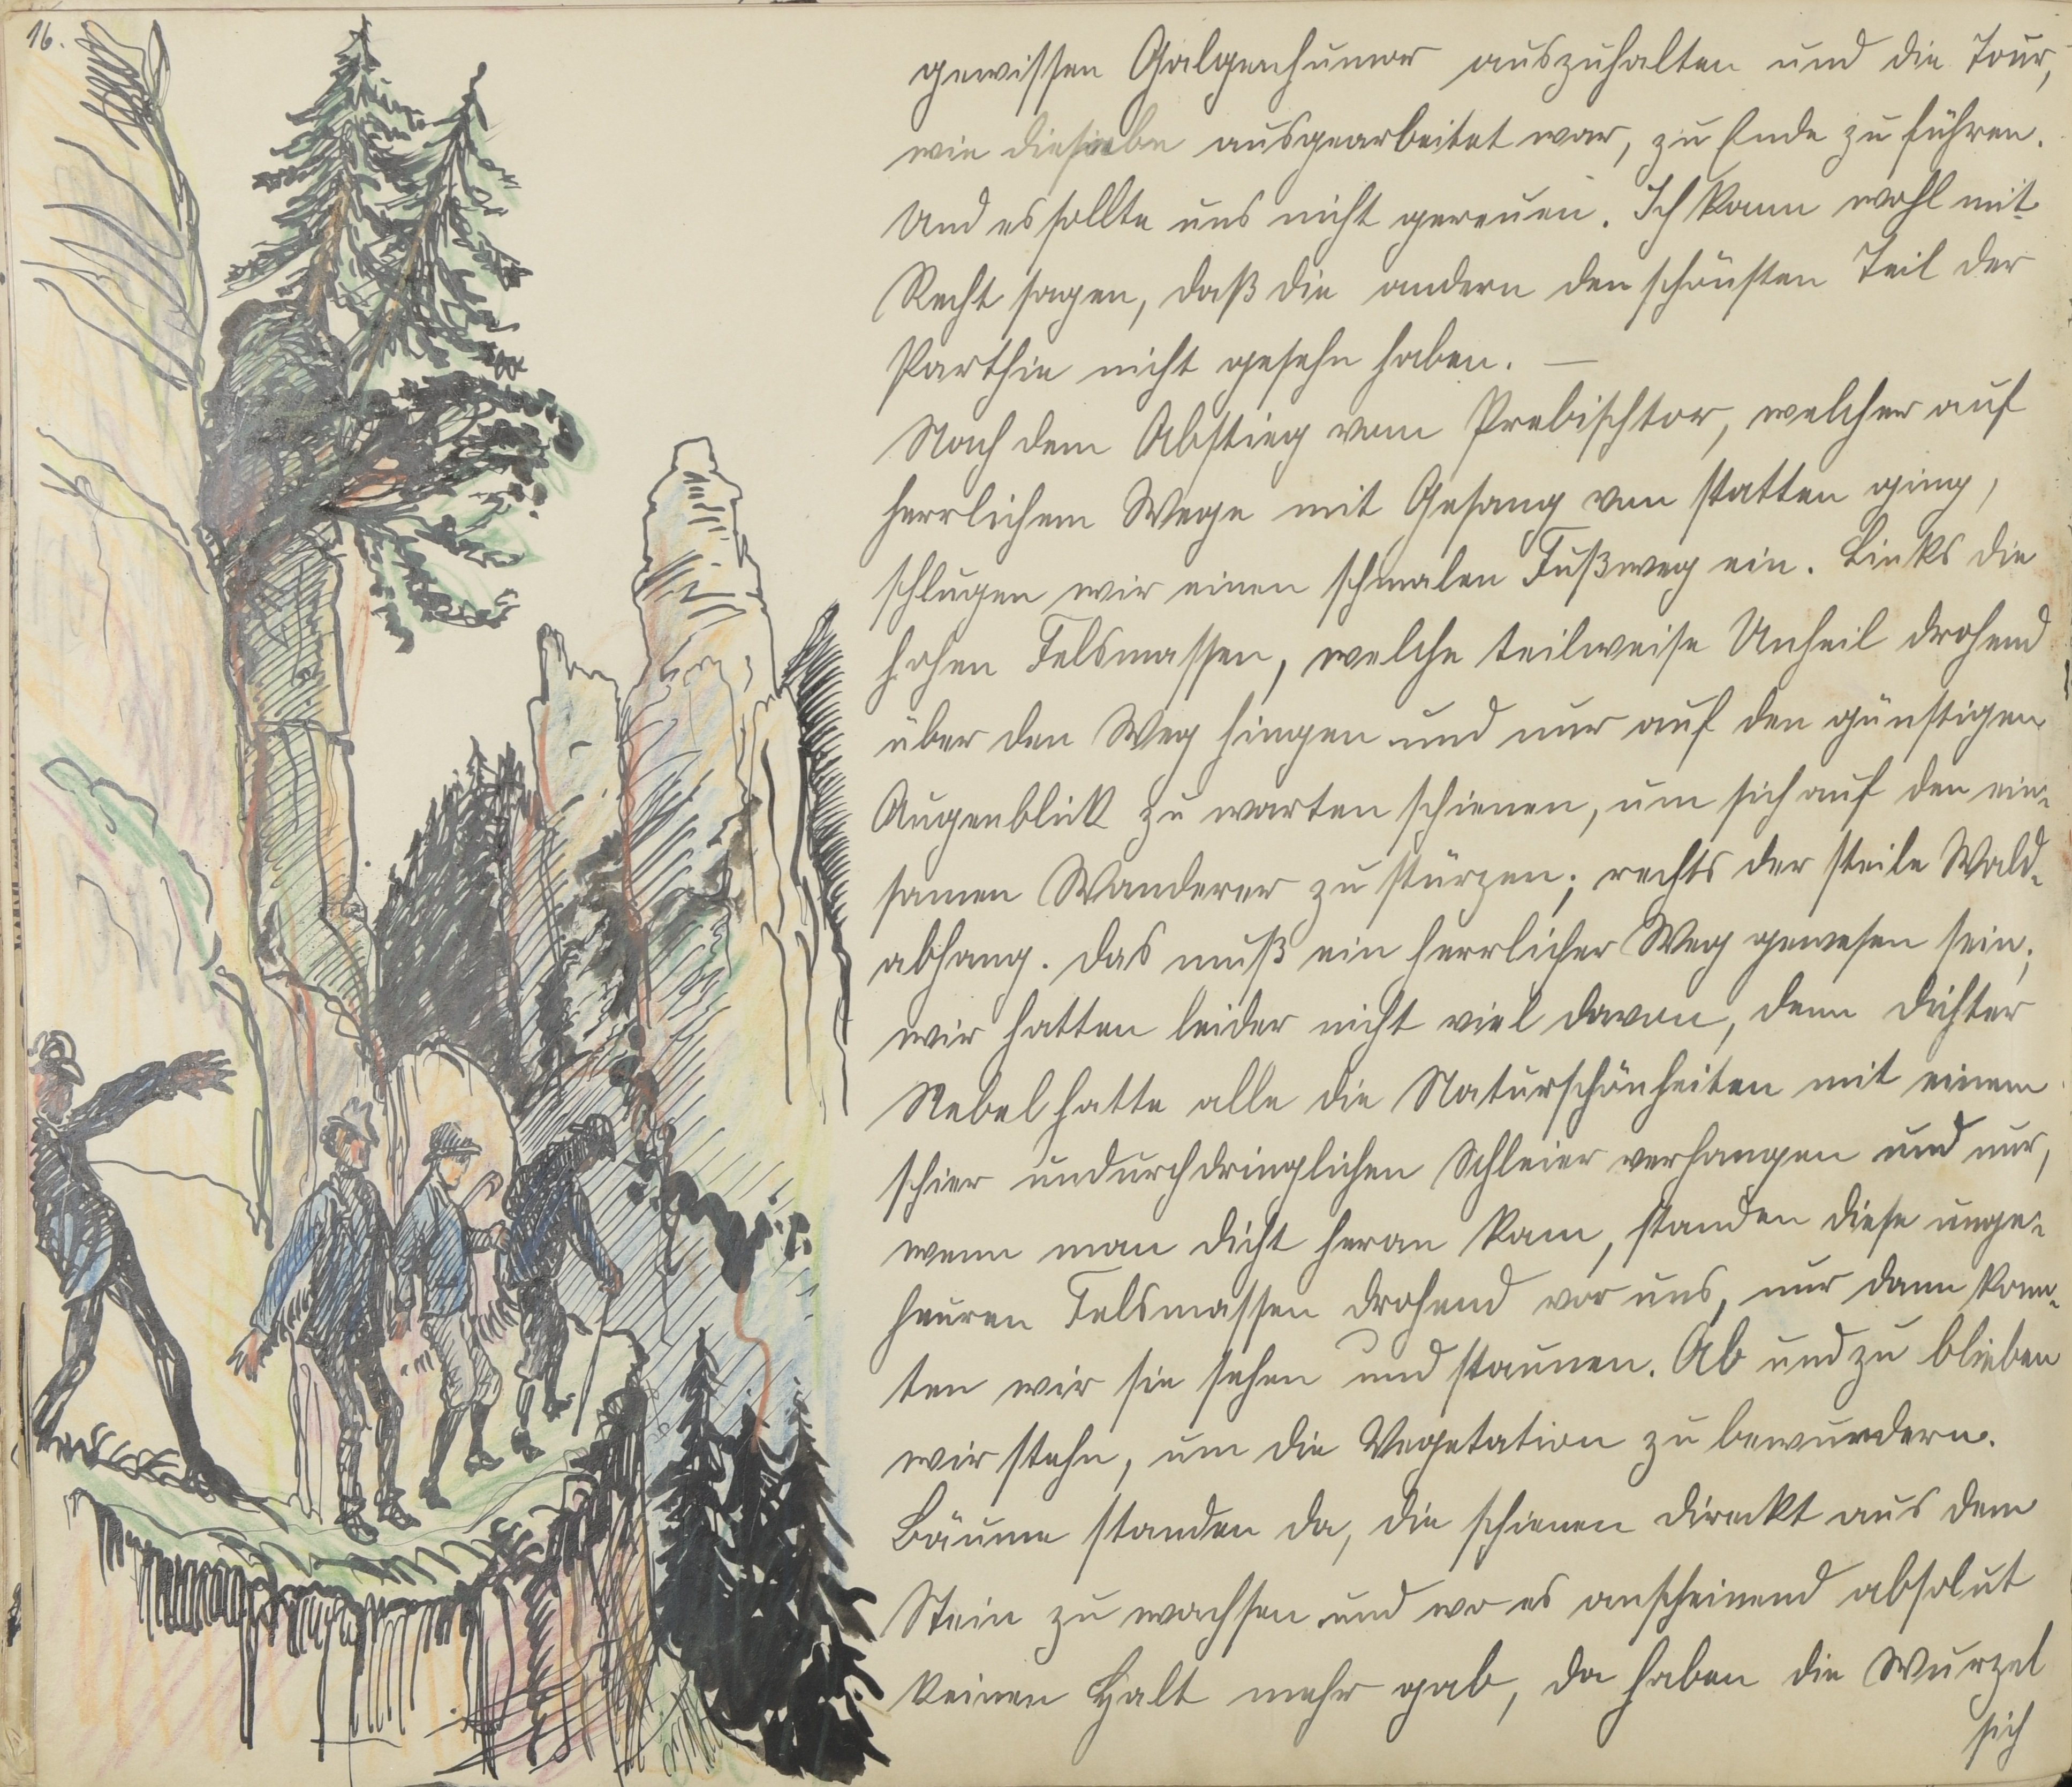 16.
gewissen Galgenhumor auszuhalten und die Tour,
wie dieselbe ausgearbeitet war, zu Ende zu führen.
Und es sollte uns nicht gereuen. Ich kann wohl mit
Recht sagen, daß die andern den schönsten Teil der
Parthie nicht gesehn haben. —
Nach dem Abstieg vom Prebischtor, welcher auf
herrlichem Wege mit Gesang von statten ging,
schlugen wir einen schmalen Fußweg ein. Links die
hohen Felsmassen, welche teilweise Unheil drohend
über den Weg hingen und nur auf den günstigen
Augenblick zu warten schienen, um sich auf den ein-
samen Wanderer zu stürzen; rechts der steile Wald-
abhang. Das muß ein herrlicher Weg gewesen sein;
wir hatten leider nicht viel davon, denn dichter
Nebel hatte alle die Naturschönheiten mit einem
schier undurchdringlichen Schleier verhangen und nur,
wenn man dicht heran kam, standen diese unge-
heuren Felsmassen drohend vor uns, nur dann konn-
ten wir sie sehen und staunen. Ab und zu blieben
wir stehn, um die Vegetation zu bewundern.
Bäume standen da, die schienen direckt aus dem
Stein zu wachsen und wo es anscheinend absolut
keinen Halt mehr gab, da haben die Wurzel
sich